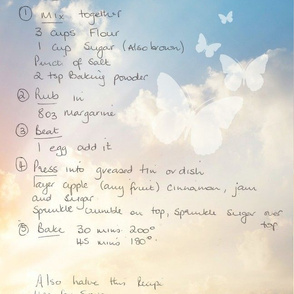 ① Mix together
3 cups Flour
1 cup Sugar (Also brown)
Pinch of Salt
2 tsp Baking powder
② Rub in
8oz Margarine
③ Beat
1 egg add it
④ Press into greased tin or dish
layer apple (any fruit) cinnamon, jam
and Sugar
Sprinkle crumble on top, Sprinkle Sugar over
top
⑤ Bake 30 mins 200°
45 mins 180°
Also halve this Recipe